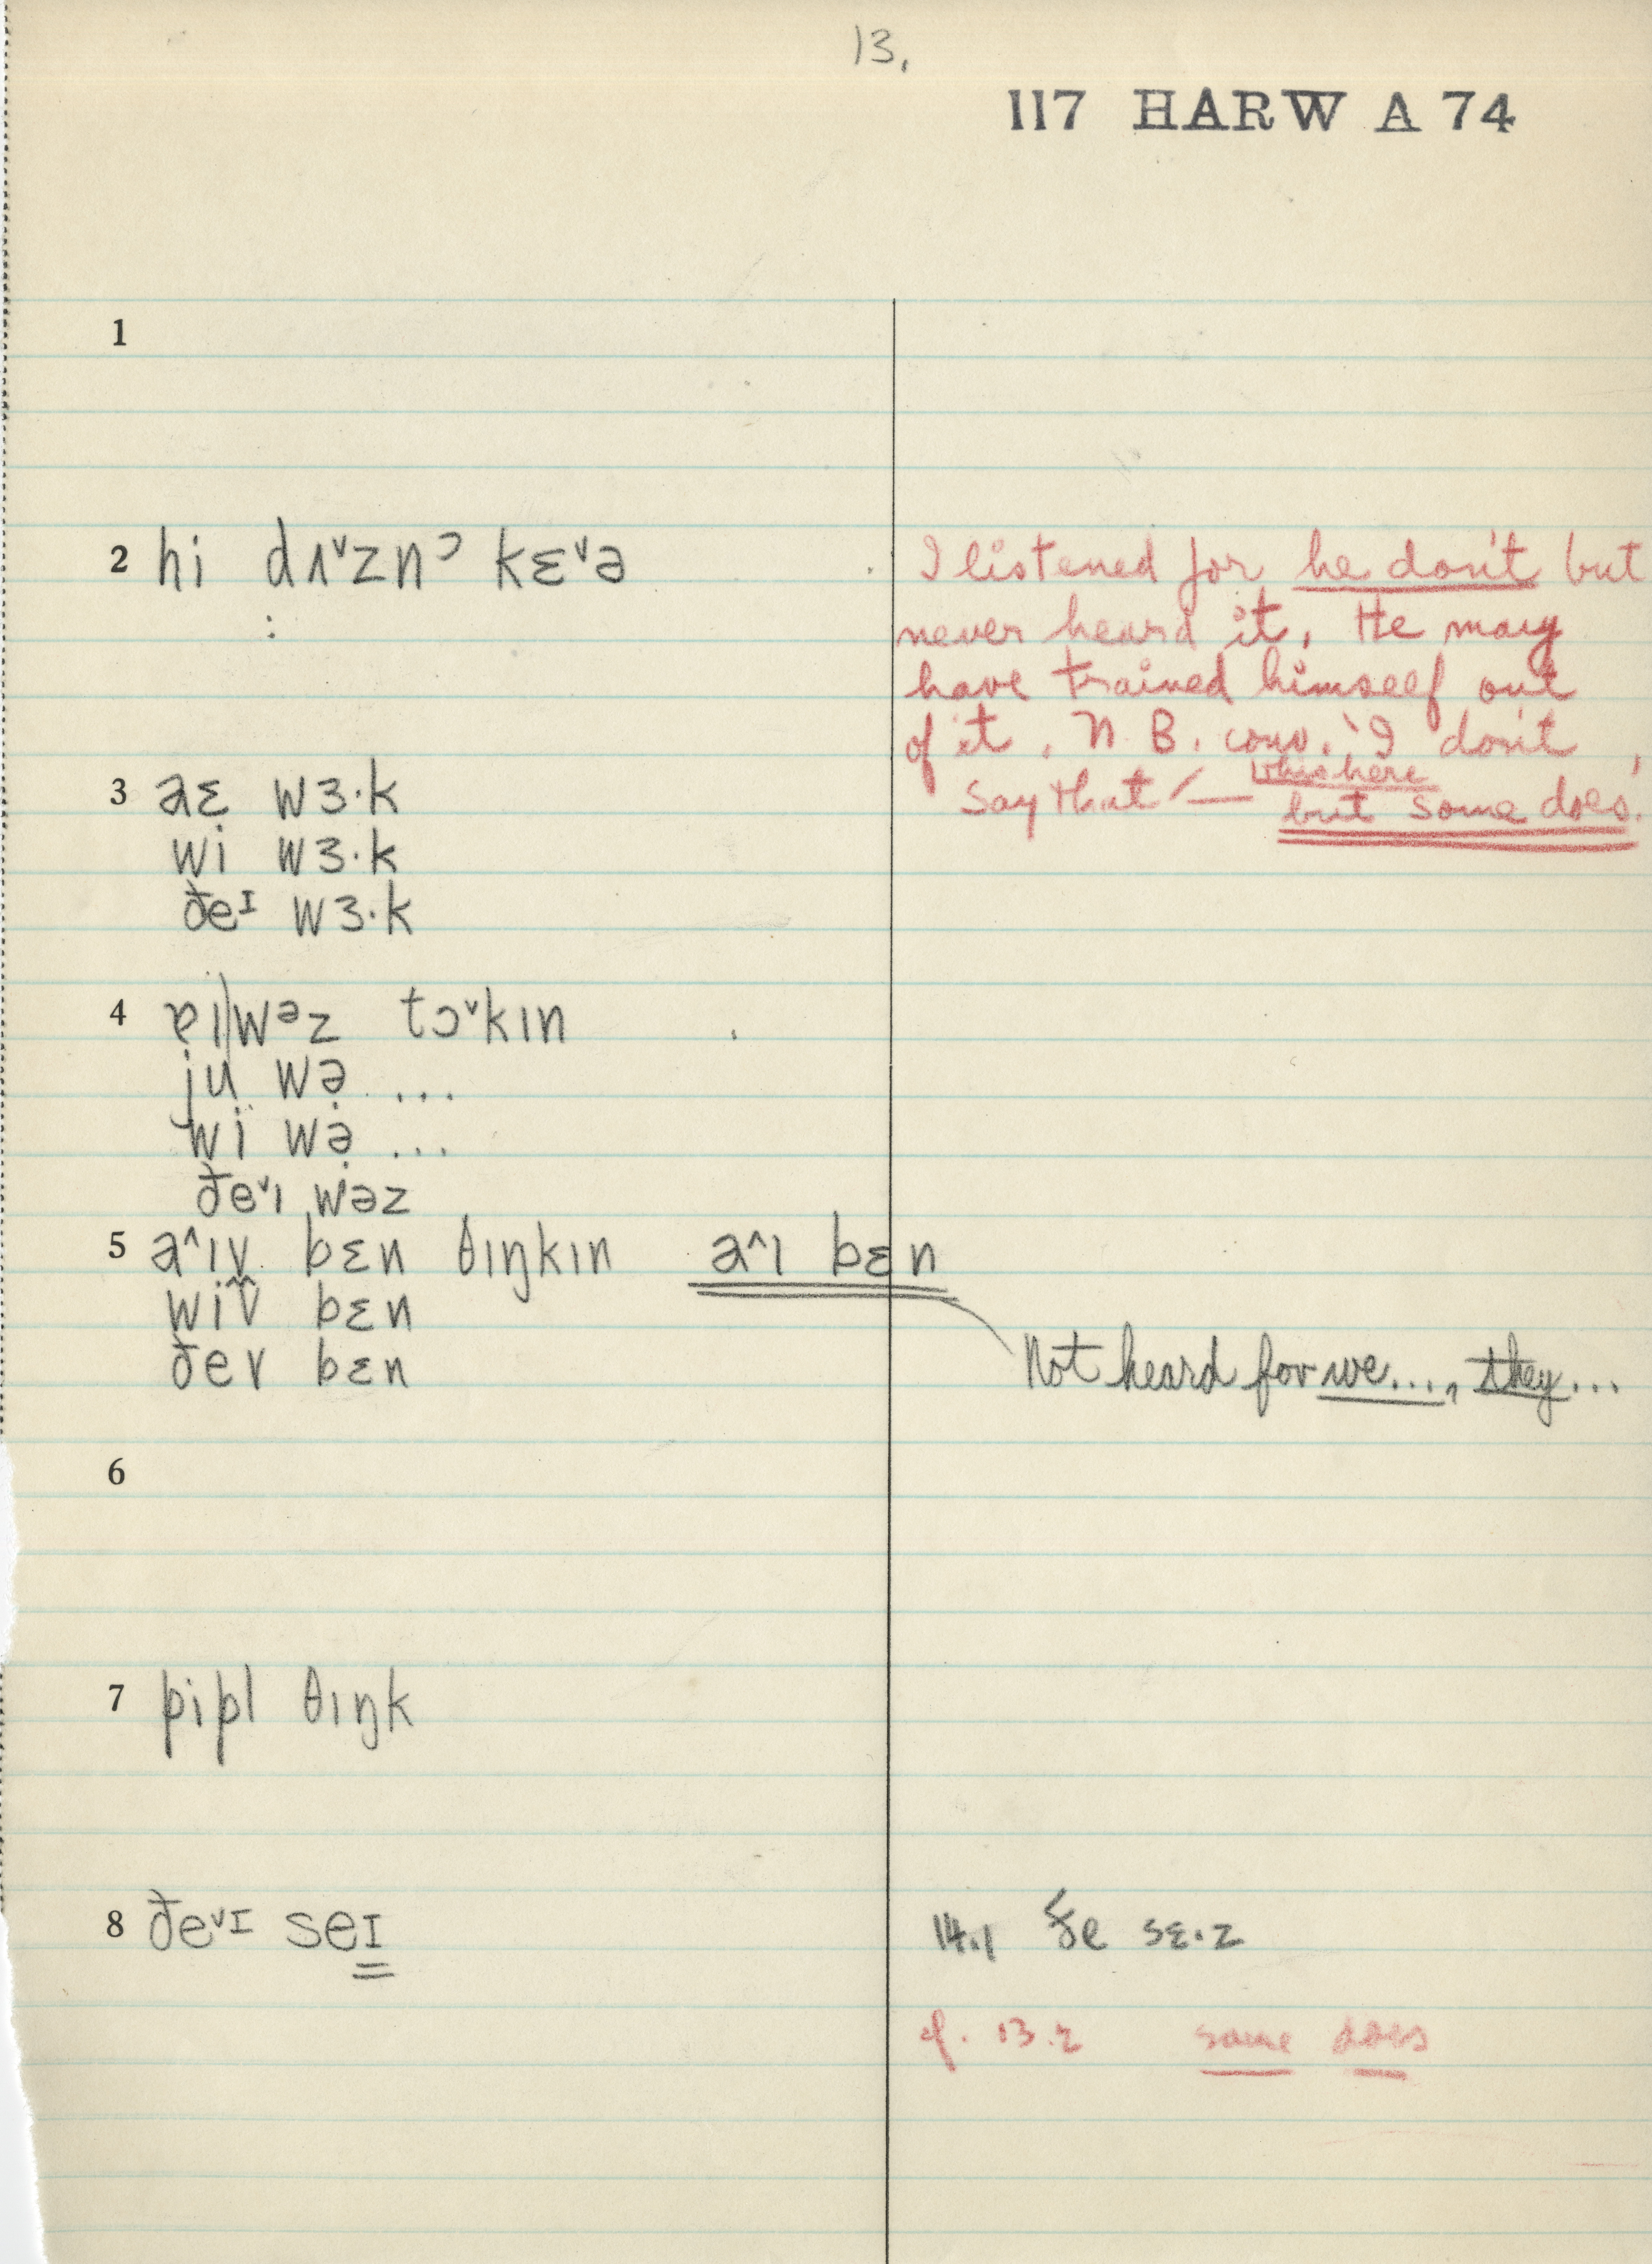 13.
117 HARW A 74
1
2 hi dʌ˅znᵓ kɛ˅ə
I listened for he don't but
never heard it. He may
have trained himself out
of it. N.B. conv. 'I don't
say that' — but some does.'
3 aɛ wɜ·k
wi wɜ·k
ðeᴵ wɜ·k
4 ɐɪ|wᵊz tɔ˅kɪn
ju wə ...
wi wə ...
ðe˅ɪ wəz
5 a˄ɪv bɛn θɪŋkɪn a˄ɪ bɛn
wiv bɛn
ðev bɛn
Not heard for we...., they...
6
7 pipl θɪŋk
8 ðe˅ᴵ seɪ
14.1 ðe sɛ·z
cf. 13.2 some does